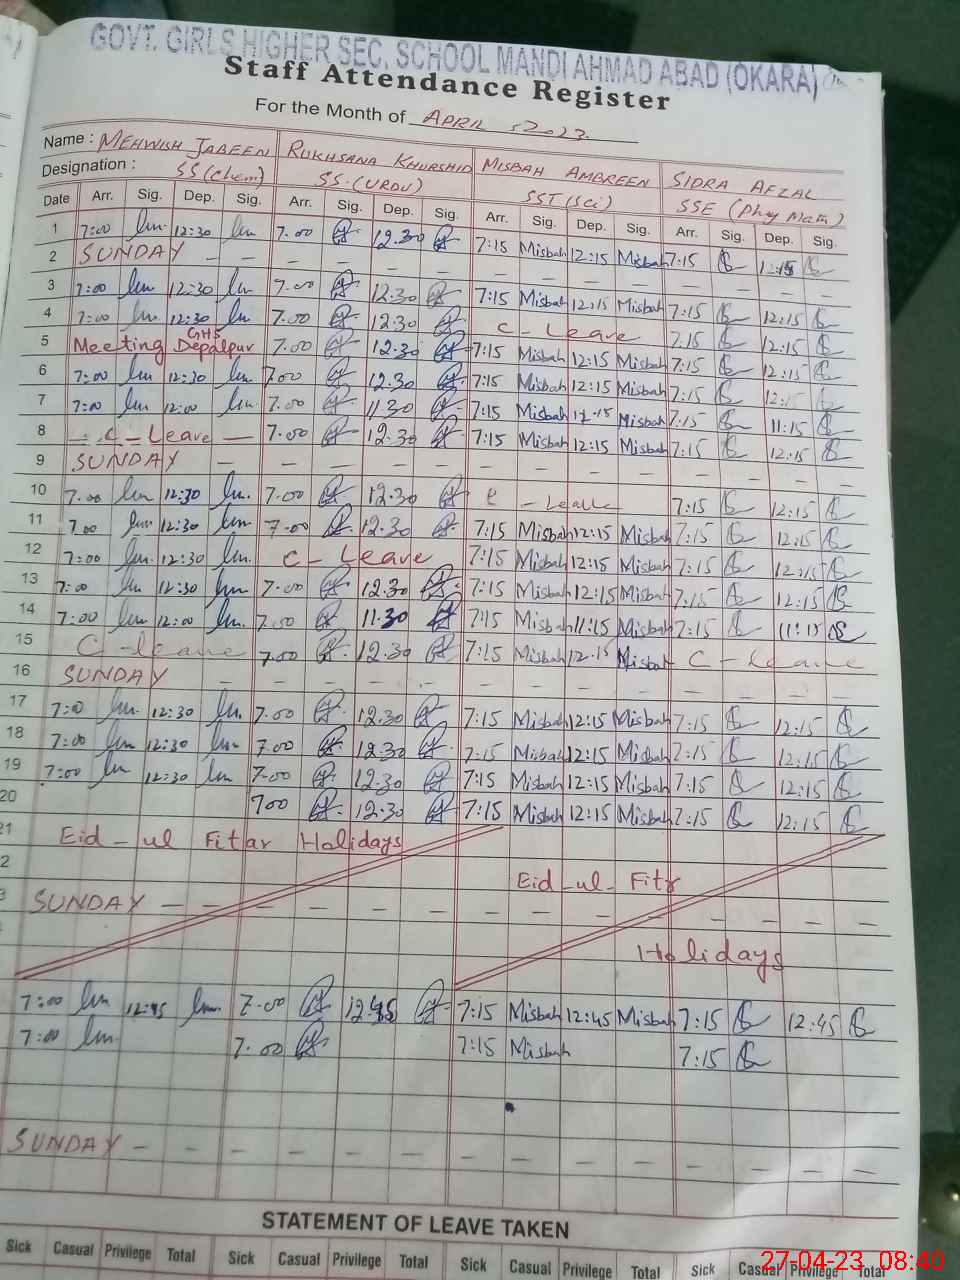 GOVT. GIRLS HIGHER SEC. SCHOOL MANDI AHMAD ABAD (OKARA)
Staff Attendance Register
For the Month of APRIL, 2023.
Name : MEHWISH JABEEN RUKHSANA KHURSHID MISBAH AMBREEN SIDRA AFZAL
Designation : SS (Chem) SS. (URDU) SST (Sci) SSE (Phy Math)
Date Arr. Sig. Dep. Sig. Arr. Sig. Dep. Sig. Arr. Sig. Dep. Sig. Arr. Sig. Dep. Sig.
1 7:00 12:30 7.00 12.30 7:15 Misbah 12:15 Misbah 7:15 12:15
2 SUNDAY — — — — — — — — — — — — —
3 7:00 12:30 7.00 12.30 7:15 Misbah 12:15 Misbah 7:15 12:15
4 7:00 12:30 7.00 12.30 C - Leave 7:15 12:15
5 Meeting GHS Depalpur 7.00 12.30 7:15 Misbah 12:15 Misbah 7:15 12:15
6 7:00 12:30 7.00 12.30 7:15 Misbah 12:15 Misbah 7:15 12:15
7 7:00 12:00 7.00 11.30 7:15 Misbah Misbah 7:15 11:15
8 — C - Leave — 7.00 12.30 7:15 Misbah 12:15 Misbah 7:15 12:15
9 SUNDAY — — — — — — — — — — — — —
10 7.00 12:30 7.00 12.30 C - Leave 7:15 12:15
11 7.00 12:30 7.00 12.30 7:15 Misbah 12:15 Misbah 7:15 12:15
12 7:00 12:30 C - Leave 7:15 Misbah 12:15 Misbah 7:15 12:15
13 7:00 12:30 7.00 12.30 7:15 Misbah 12:15 Misbah 7:15 12:15
14 7:00 12:00 11.30 7:15 Misbah 11:15 Misbah 7:15 11:15
15 C - leave 7.00 12.30 7:15 Misbah 12:15 Misbah C - Leave
16 SUNDAY — — — — — — — — — — — — —
17 7:00 12:30 7.00 12.30 7:15 Misbah 12:15 Misbah 7:15 12:15
18 7:00 12:30 7.00 12.30 7:15 Misbah 12:15 Misbah 7:15 12:15
19 7:00 12:30 7.00 12.30 7:15 Misbah 12:15 Misbah 7:15 12:15
20 7.00 12.30 7:15 Misbah 12:15 Misbah 7:15 12:15
21 Eid - ul Fitar Holidays
2 Eid - ul - Fitr
3 SUNDAY — — — — — — — — — — — — —
Holidays
7:00 12:45 7.00 12.45 7:15 Misbah 12:45 Misbah 7:15 12:45
7:00 7.00 7:15 Misbah 7:15
SUNDAY — — — — — — — — — — — — —
STATEMENT OF LEAVE TAKEN
Sick Casual Privilege Total Sick Casual Privilege Total Sick Casual Privilege Total Sick Casual Privilege Total
27-04-23 08:40